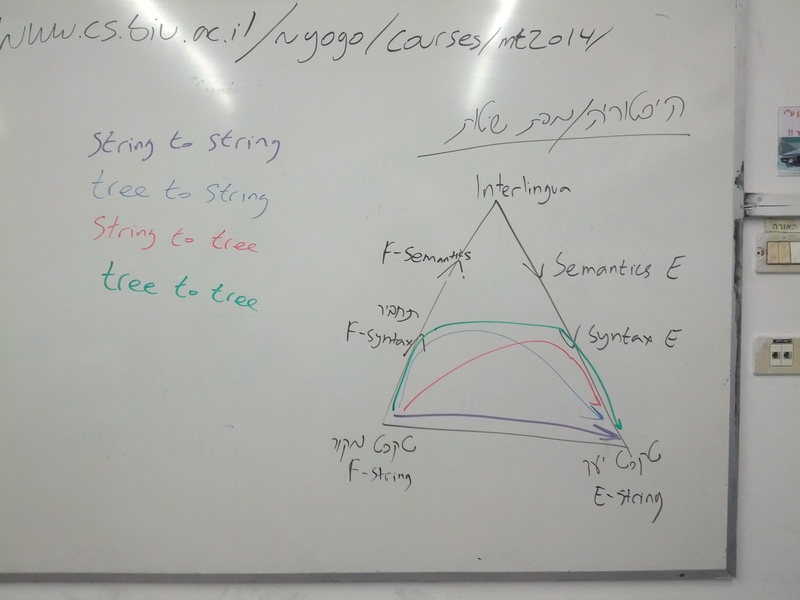 www.cs.biu.ac.il/~yogo/courses/mt2014/
היסטוריה/מפת שיטות
String to string
tree to string
String to tree
tree to tree
Interlingua
F-Semantics
Semantics E
תחביר
F-syntax
Syntax E
טקסט מקור
F-string
טקסט יעד
E-string
תאורה